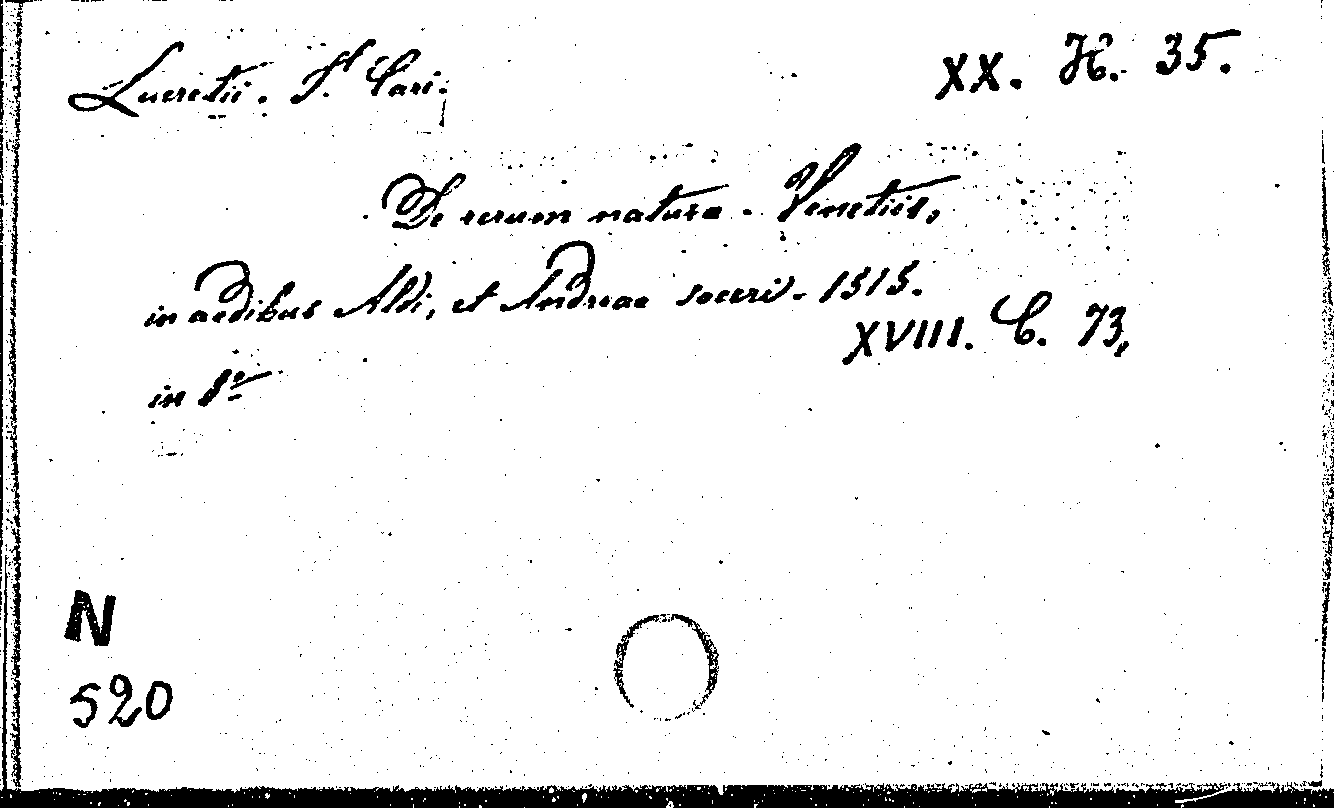 Lucretii. T. Cari. XX. H. 35.
De rerum natura. Venetiis,
in aedibus Aldi, et Andreae soceri. 1515.
XVIII. C. 73,
in 8º
N
520